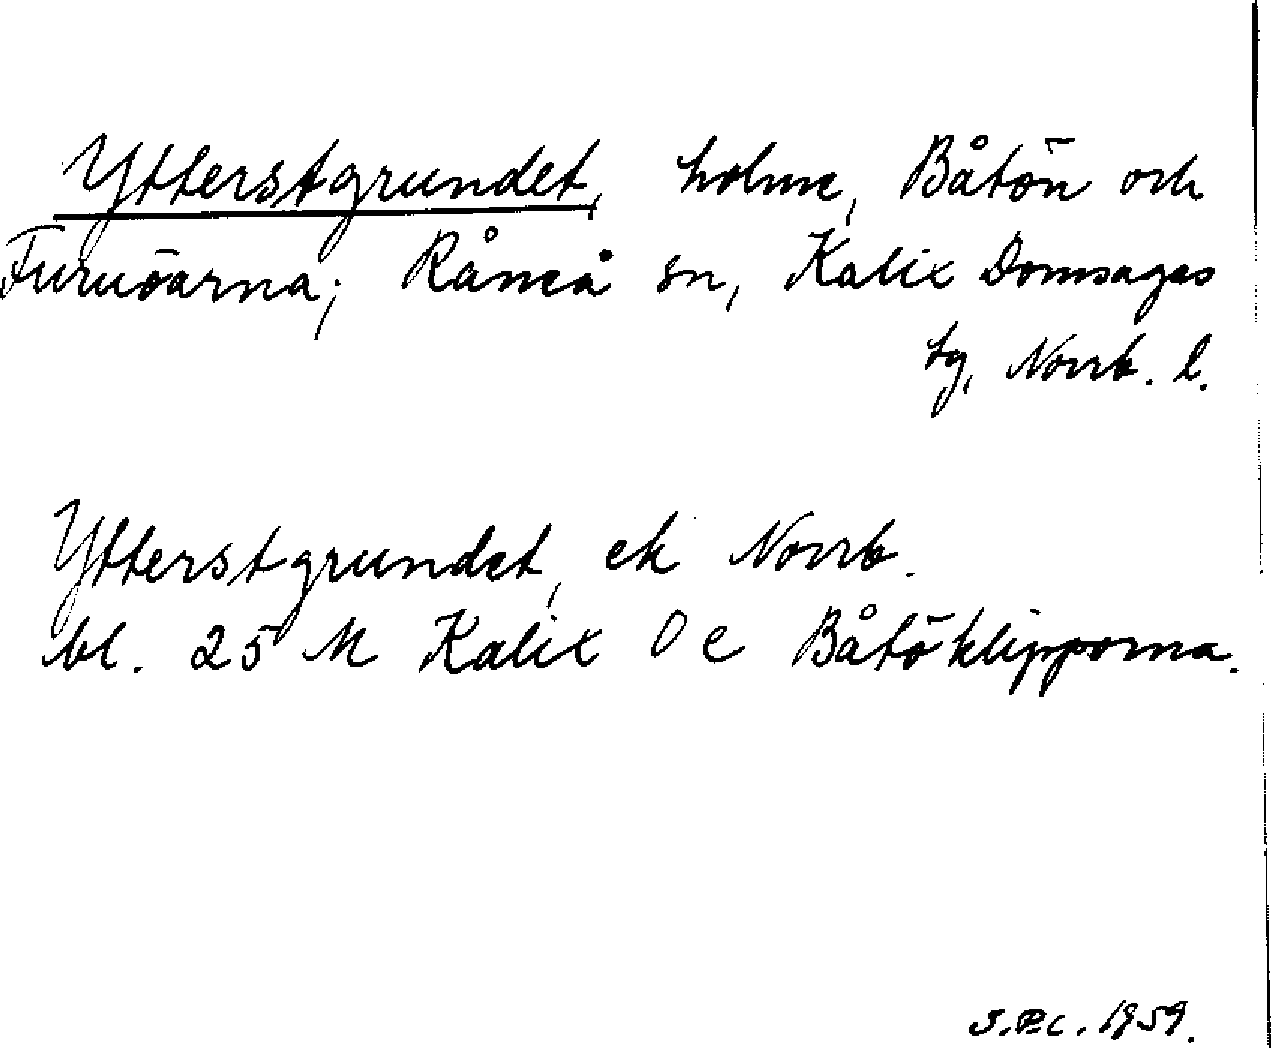 Ytterstgrundet, holme, Båtön och
Furuöarna; Råneå sn, Kalix Domsagas
tg, Norrb. l.
Ytterstgrundet, ek Norrb.
bl. 25 N Kalix O e Båtöklipporna.
1959.